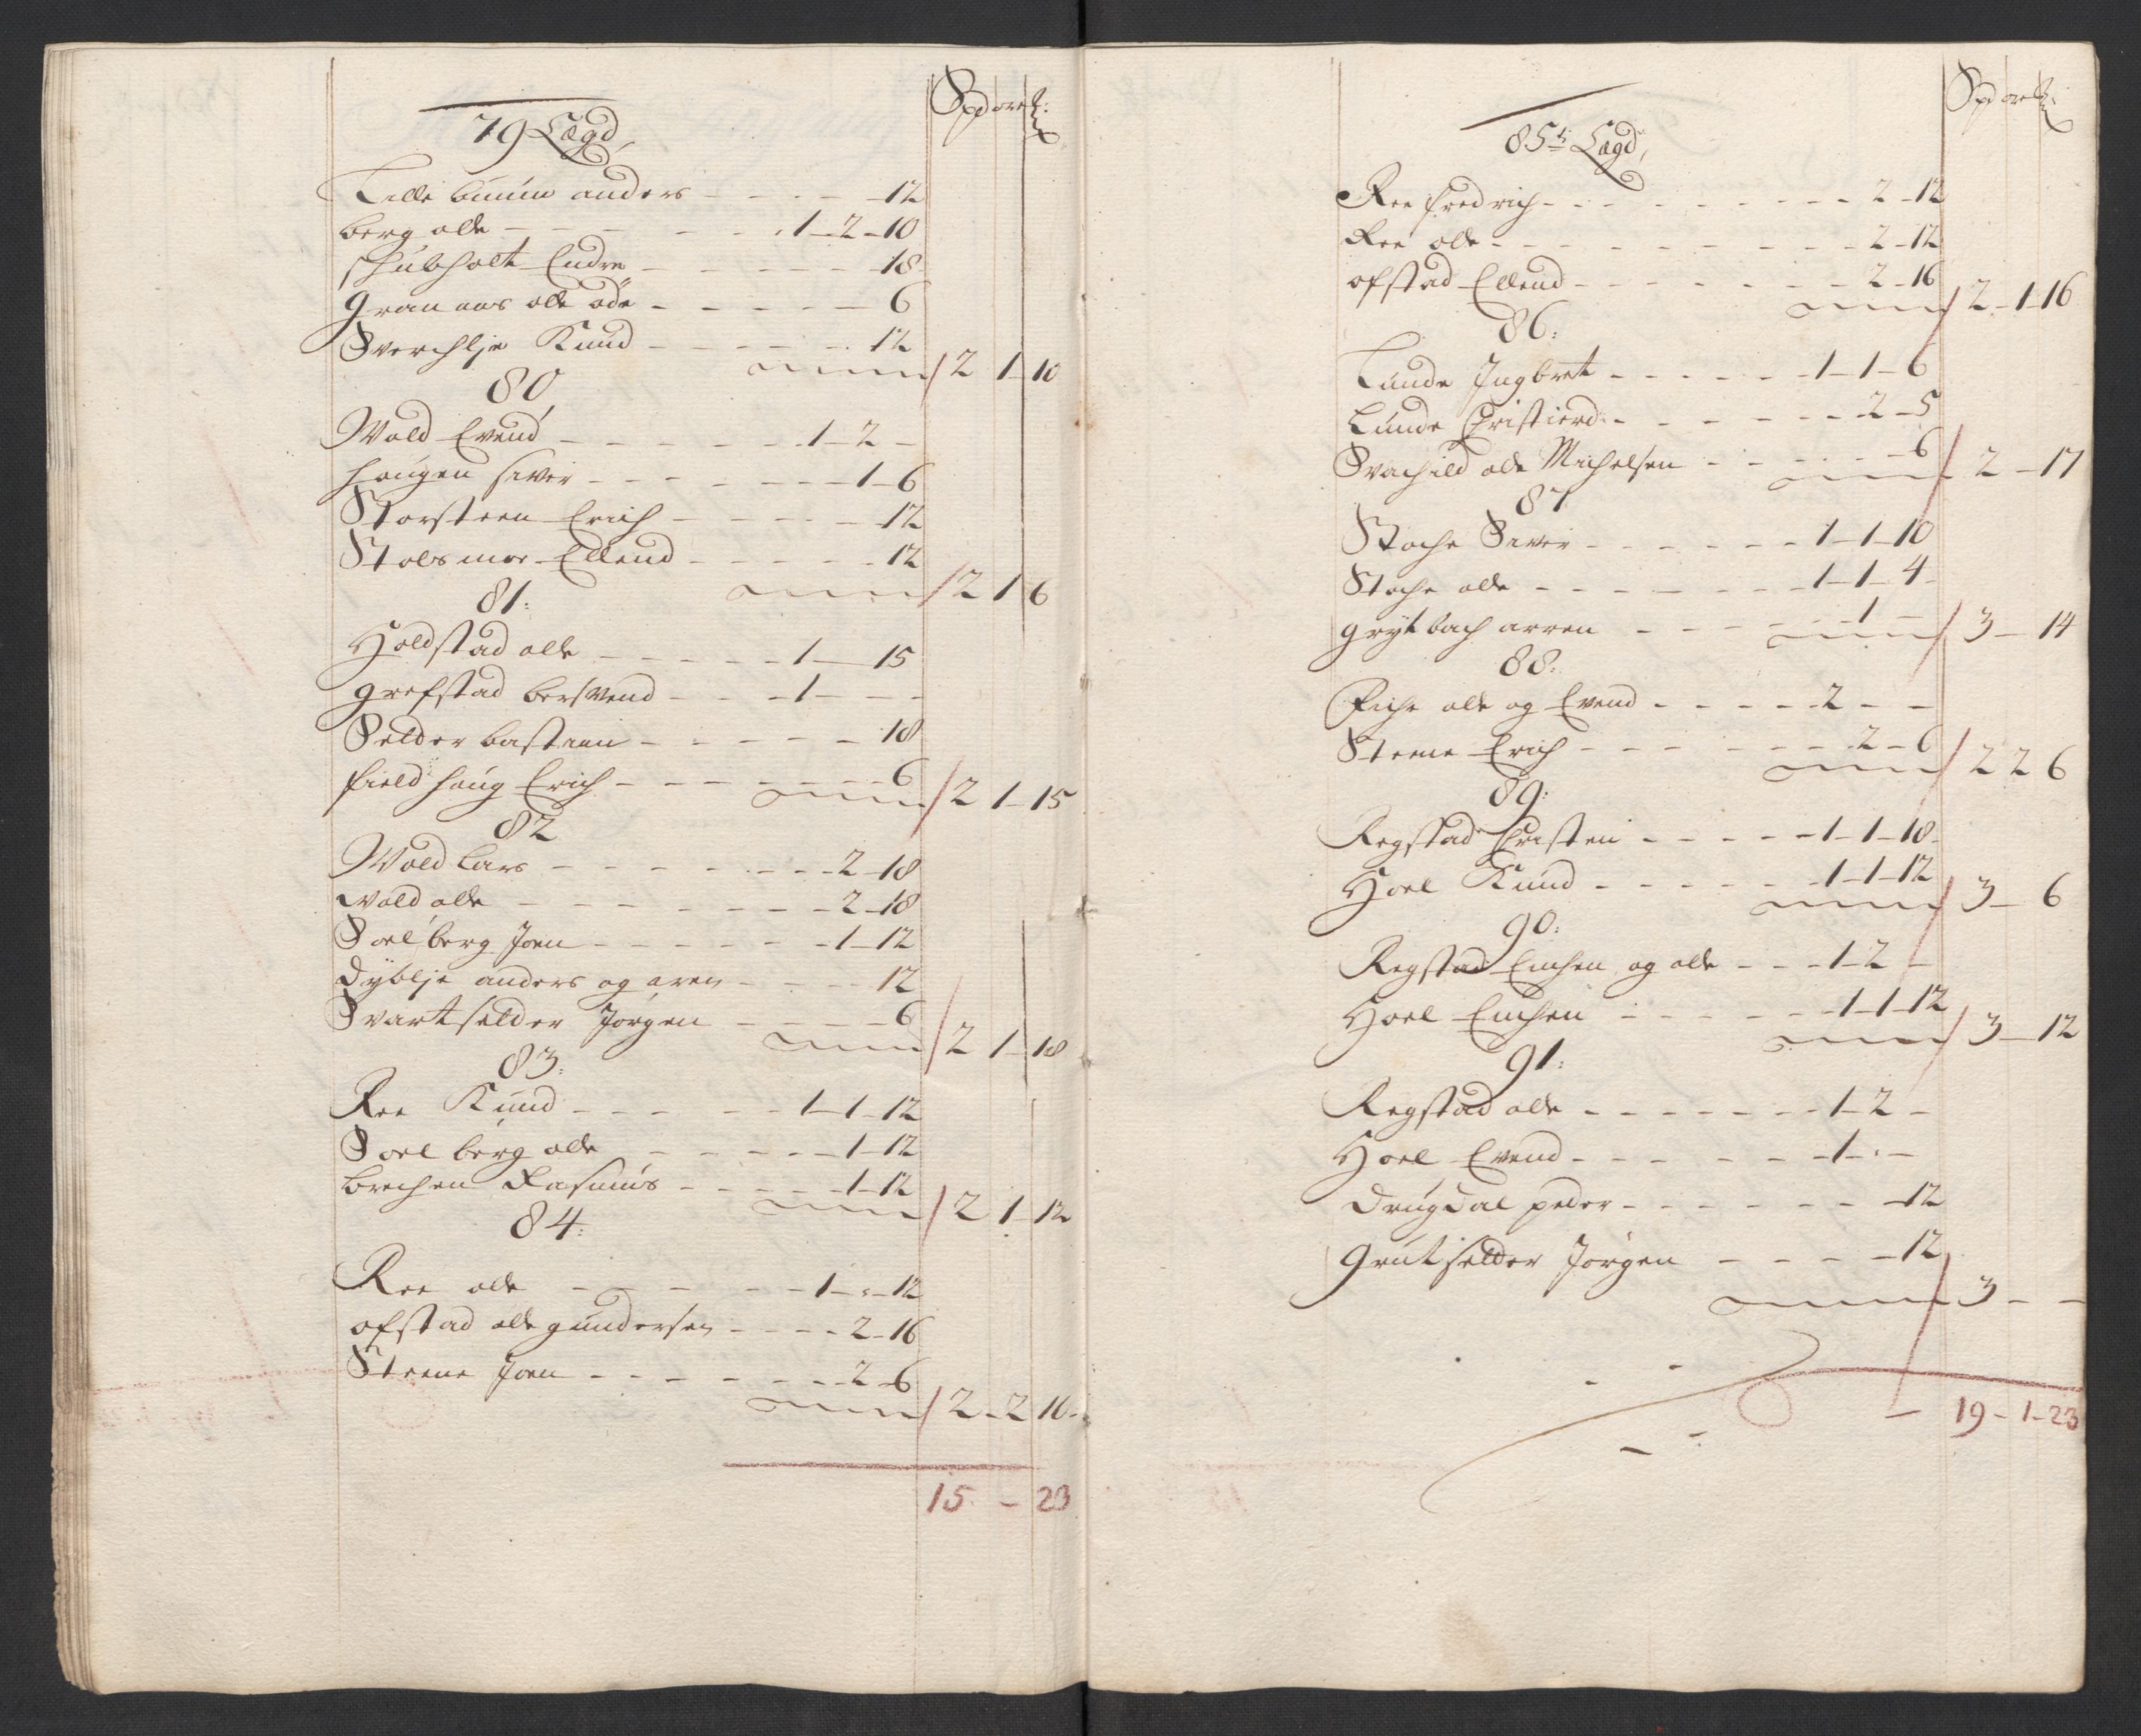 Spd ore ℔:
79 Lægd,
Lille buunn anders - - - - 12
berg olle - - - - 1-2-10
skubholt Endre - - - - 18
gran aas olle øde - - - - 6
Sverchlje Knud - - - - 12
2 1-10
80
Wold Evend - - - - 1-2-
haugen siver - - - - 1-6
Storsteen Erich - - - - 12
Stolsmoe Ellend - - - - 12
2 1 6
81:
Holdstad olle - - - - 1-15
grefstad bersvend - - - 1 - -
Selder bastian - - - - 18
field haug Erich - - - - 6
2 1-15
82
Wold Lars - - - - 2-18
wold olle - - - - 2-18
Soelberg Joen - - - - 1-12
dyblje anders og aren - - - 12
Svartselder Jørgen - - - - 6
2 1-18
83:
Ree Knud - - - - 1-1-12
Soelberg olle - - - - 1-12
brechen Rasmus - - - - 1-12
2 1-12
84:
Ree olle - - - - 1-:-12
ofstad olle gundersen - - - 2-16
Steene Joen - - - - 2-6
2-2 10-
15 - 23
Spd ore ℔:
85t: Lægd,
Ree fredrich - - - - 2-12
Ree olle - - - - 2-12
ofstad Ellend - - - - 2-16
2-1-16
86:
Lunde Ingbret - - - - 1-1-6
Lunde Christierd: - - - - 2-5
Svachild olle Michelsen - - - - 6
2-17
87
Stoche Siver - - - - 1-1-10
Stoche olle - - - - 1-1-4-
grytbach arren - - - - 1-
3-14
88:
Fiche olle og Evend - - - - 2 - -
Steene Erich - - - - 2-6
2 2 6
89:
Regstad Christen - - - - 1-1-18-
Hoel Knud - - - - 1-1-12
3-6
90:
Regstad Einchen og olle - - - 1-2-
Hoel Einchen - - - - 1-1-12
3-12
91:
Regstad olle - - - - 1-2-
Hoel Evend - - - - 1-:-
drugdal peder - - - - 12
Grutselder Jørgen - - - - 12
3 - -
- 19-1-23